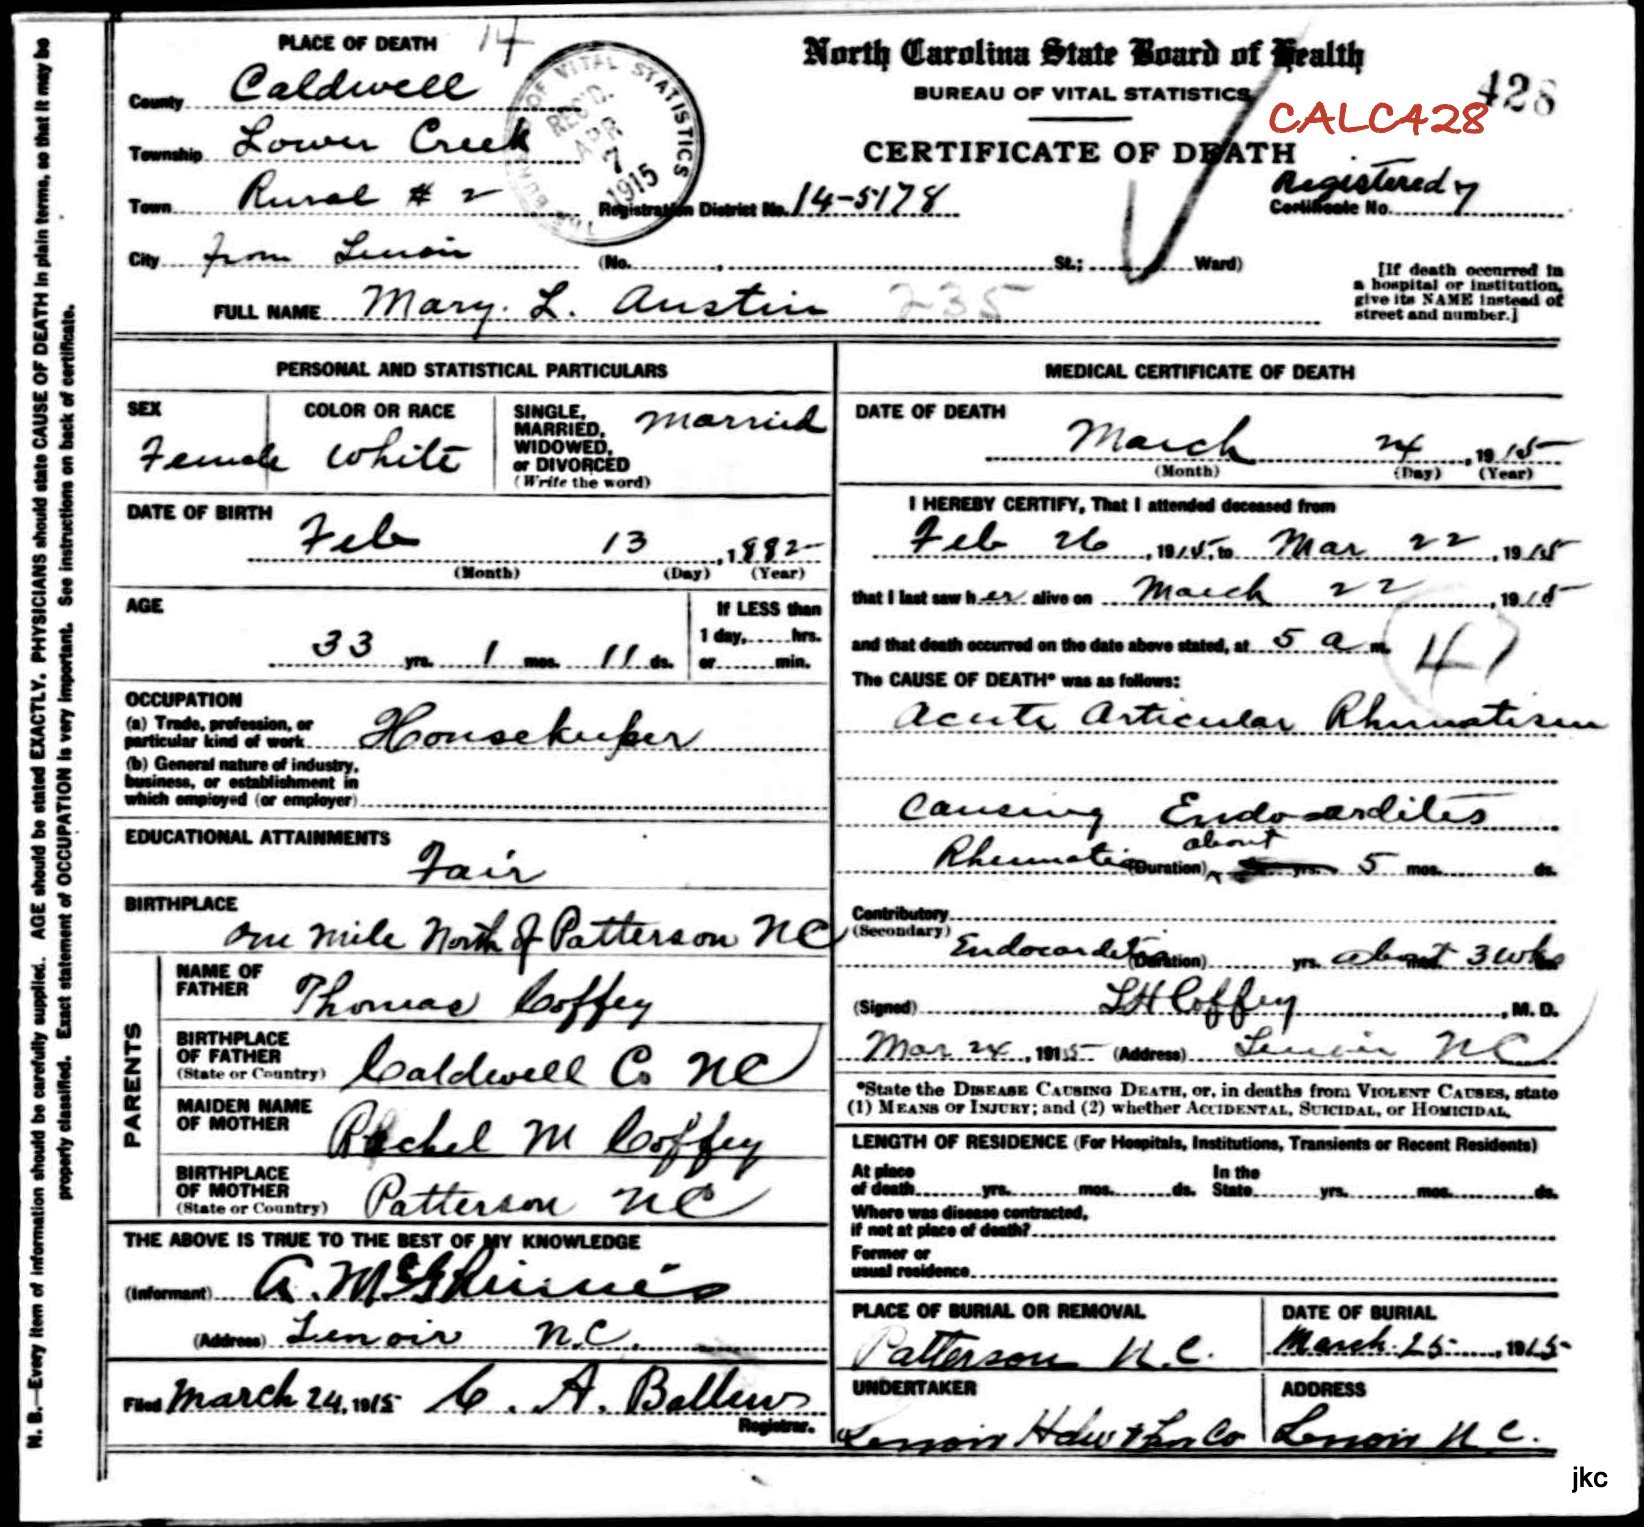 PLACE OF DEATH 14
County Caldwell
Township Lower Creek
Town Rural # 2
City from Lenoir (No. , St.; Ward)
FULL NAME Mary. L. Austin 235
BUREAU OF VITAL STATISTICS
REC'D.
APR
7
1915
North Carolina State Board of Health
BUREAU OF VITAL STATISTICS
428
CALC428
CERTIFICATE OF DEATH
Registration District No. 14-5178
Registered 7
Certificate No.
[If death occurred in
a hospital or institution,
give its NAME instead of
street and number.]
PERSONAL AND STATISTICAL PARTICULARS
SEX
Female
COLOR OR RACE
White
SINGLE,
MARRIED,
WIDOWED,
or DIVORCED
(Write the word)
Married
DATE OF BIRTH
Feb 13, 1882
(Month) (Day) (Year)
AGE
33 yrs. 1 mos. 11 ds.
If LESS than
1 day, hrs.
or min.
OCCUPATION
(a) Trade, profession, or
particular kind of work Housekeeper
(b) General nature of industry,
business, or establishment in
which employed (or employer)
EDUCATIONAL ATTAINMENTS
Fair
BIRTHPLACE
One mile North of Patterson NC
PARENTS
NAME OF
FATHER Thomas Coffey
BIRTHPLACE
OF FATHER
(State or Country) Caldwell Co NC
MAIDEN NAME
OF MOTHER Rachel M Coffey
BIRTHPLACE
OF MOTHER
(State or Country) Patterson NC
THE ABOVE IS TRUE TO THE BEST OF MY KNOWLEDGE
(Informant) A. McGhinnis
(Address) Lenoir N.C.
Filed March 24, 1915 C. A. Ballew
Registrar.
MEDICAL CERTIFICATE OF DEATH
DATE OF DEATH
March 24, 1915
(Month) (Day) (Year)
I HEREBY CERTIFY, That I attended deceased from
Feb 26, 1915, to Mar 22, 1915
that I last saw her alive on March 22, 1915
and that death occurred on the date above stated, at 5 a m.
47
The CAUSE OF DEATH* was as follows:
Acute Articular Rhumatism
Causing Endocardites
Rheumatic (Duration) about yrs. 5 mos. ds.
Contributory
(Secondary)
Endocarditis (Duration) yrs. about mos. 3 wks ds.
(Signed) LH Coffey, M. D.
Mar 24, 1915 (Address) Lenoir NC
*State the DISEASE CAUSING DEATH, or, in deaths from VIOLENT CAUSES, state
(1) MEANS OF INJURY; and (2) whether ACCIDENTAL, SUICIDAL, or HOMICIDAL.
LENGTH OF RESIDENCE (For Hospitals, Institutions, Transients or Recent Residents)
At place
of death yrs. mos. ds.
In the
State yrs. mos. ds.
Where was disease contracted,
if not at place of death?
Former or
usual residence
PLACE OF BURIAL OR REMOVAL
Patterson N.C.
DATE OF BURIAL
March 25, 1915
UNDERTAKER
Lenoir Hdw & Fur Co
ADDRESS
Lenoir N C.
N. B.—Every item of information should be carefully supplied. AGE should be stated EXACTLY. PHYSICIANS should state CAUSE OF DEATH in plain terms, so that it may be
properly classified. Exact statement of OCCUPATION is very important. See instructions on back of certificate.
jkc